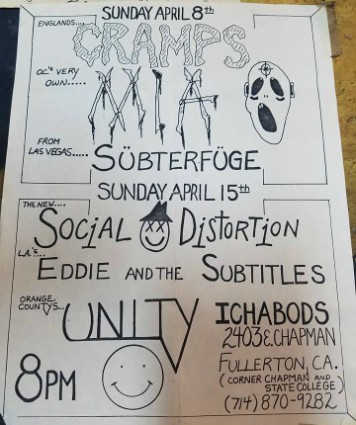 SUNDAY APRIL 8th
ENGLANDS....
CRAMPS
OC'S VERY
OWN.....
MIA
FROM
LAS VEGAS.....
SÜBTERFÜGE
SUNDAY APRIL 15th
THE NEW....
SOCIAL DISTORTION
L.A.'S...
EDDIE AND THE SUBTITLES
ORANGE
COUNTYS...
UNITY
ICHABODS
2403 E. CHAPMAN
FULLERTON, CA.
(CORNER CHAPMAN AND
STATE COLLEGE)
8PM
(714) 870-9282